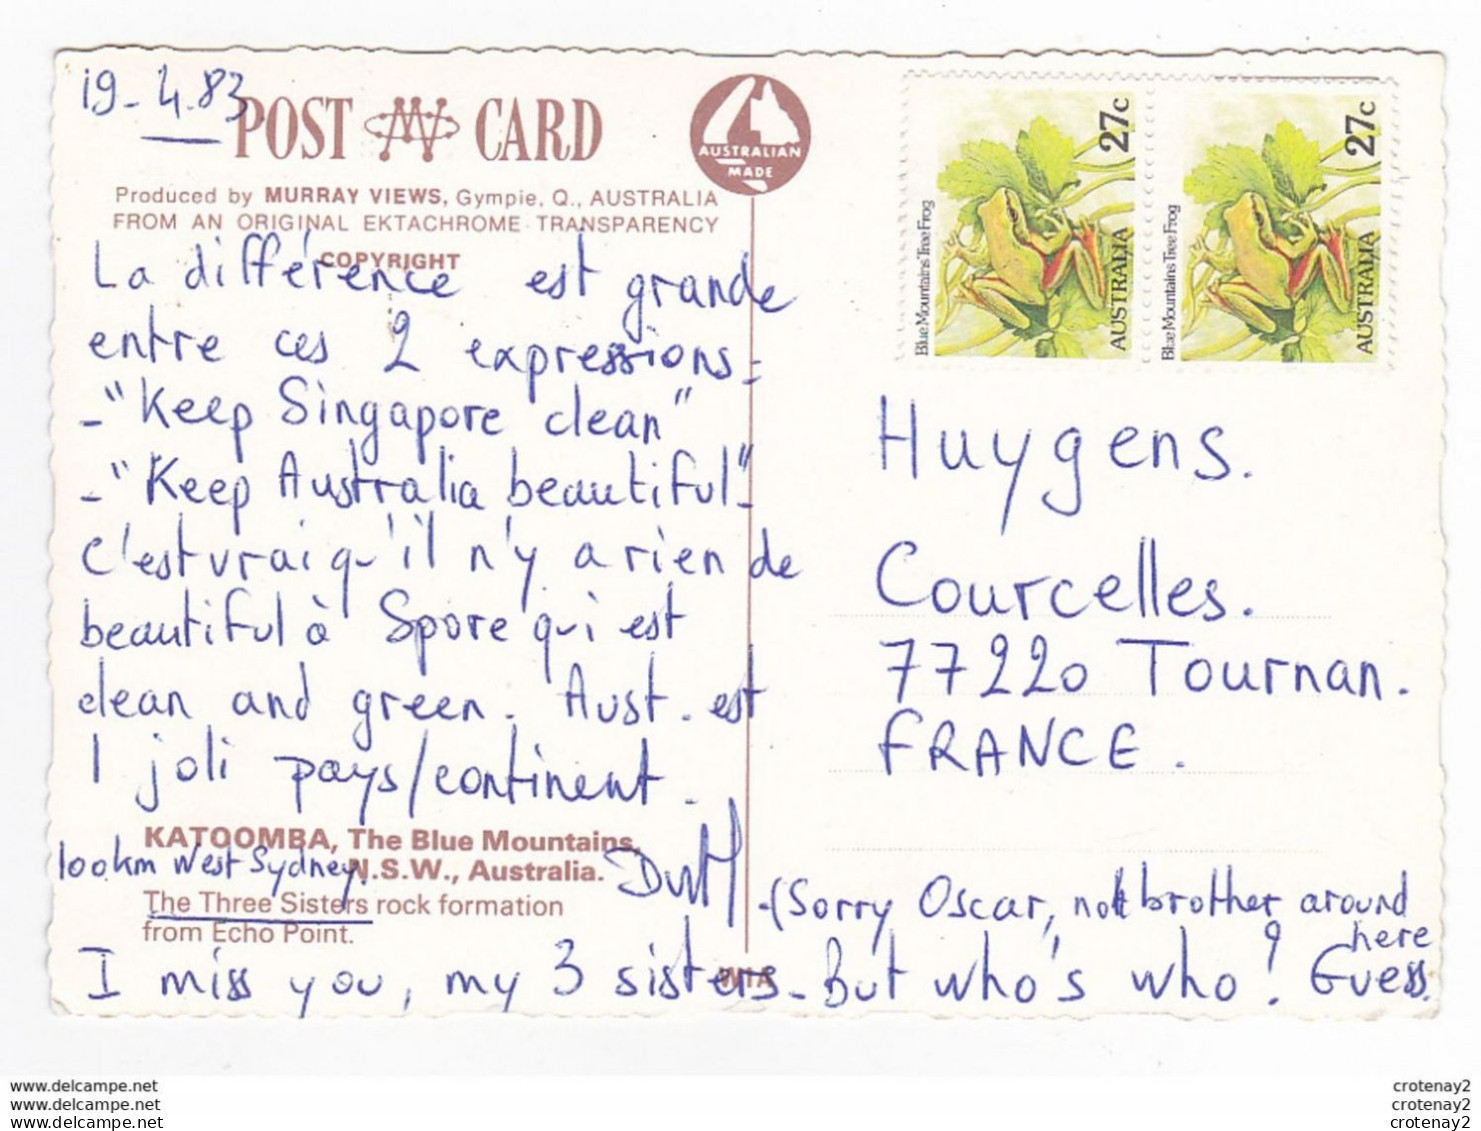 19-4.83
POST CARD
AUSTRALIAN
MADE
Produced by MURRAY VIEWS, Gympie, Q., AUSTRALIA
FROM AN ORIGINAL EKTACHROME TRANSPARENCY
COPYRIGHT
La différence est grande
entre ces 2 expressions=
-"Keep Singapore clean"
-"Keep Australia beautiful"-
C'est vrai qu'il n'y a rien de
beautiful à Spore qui est
clean and green. Aust. est
1 joli pays/continent.
KATOOMBA, The Blue Mountains,
100km West Sydney.
N.S.W., Australia.
The Three Sisters rock formation
from Echo Point.
-(Sorry Oscar, not brother around
here
I miss you, my 3 sisters-But who's who? Guess.
W1A
Blue Mountains Tree Frog
27c
AUSTRALIA
Blue Mountains Tree Frog
27c
AUSTRALIA
Huygens.
Courcelles.
77220 Tournan.
FRANCE.
www.delcampe.net
www.delcampe.net
www.delcampe.net
crotenay2
crotenay2
crotenay2